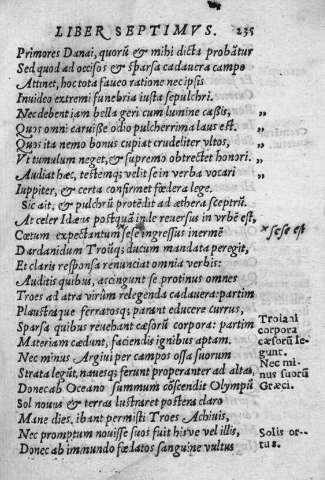 LIBER SEPTIMVS. 235
Primores Danai, quorũ & mihi dicta probãtur
Sed quod ad occisos & sparsa cadauera campo
Attinet, hoc tota faueo ratione nec ipsis
Inuideo extremi funebria iusta sepulchri.
Nec debent iam bella geri cum lumine cassis, „
Quos omni caruisse odio pulcherrima laus est. „
Quos ita nemo bonus cupiat crudeliter vltos, „
Vt tumulum neget, & supremo obtrectet honori. „
Audiat hæc, testemq; velit se in verba vocari „
Iuppiter, & certa confirmet fœdera lege.
Sic ait, & pulchrũ protēdit ad æthera sceptrũ.
At celer Idæus postquã inde reuersus in vrbẽ est,
Cœtum expectantum sese ingressus inermẽ * sese est
Dardanidum Troũq; ducum mandata peregit,
Et claris responsa renunciat omnia verbis:
Auditis quibus, accingunt se protinus omnes
Troes ad atra virũm relegenda cadauera: partim
Plaustráque ferratosq; parant educere currus,
Sparsa quibus reuehant cæsorũ corpora: partim
Materiam cædunt, faciendis ignibus aptam.
Nec minus Argiui per campos ossa suorum
Strata legũt, nauesq; ferunt properanter ad altas,
Donec ab Oceano summum cõscendit Olympũ
Sol nouus & terras lustraret postera claro
Mane dies. ibant permisti Troes Achiuis,
Nec promptum nouisse suos fuit hisve vel illis,
Donec ab immundo fœdatos sanguine vultus
Troiani
corpora
cæsorũ le-
gunt.
Nec mi-
nus suorũ
Græci.
Solis or-
tus.